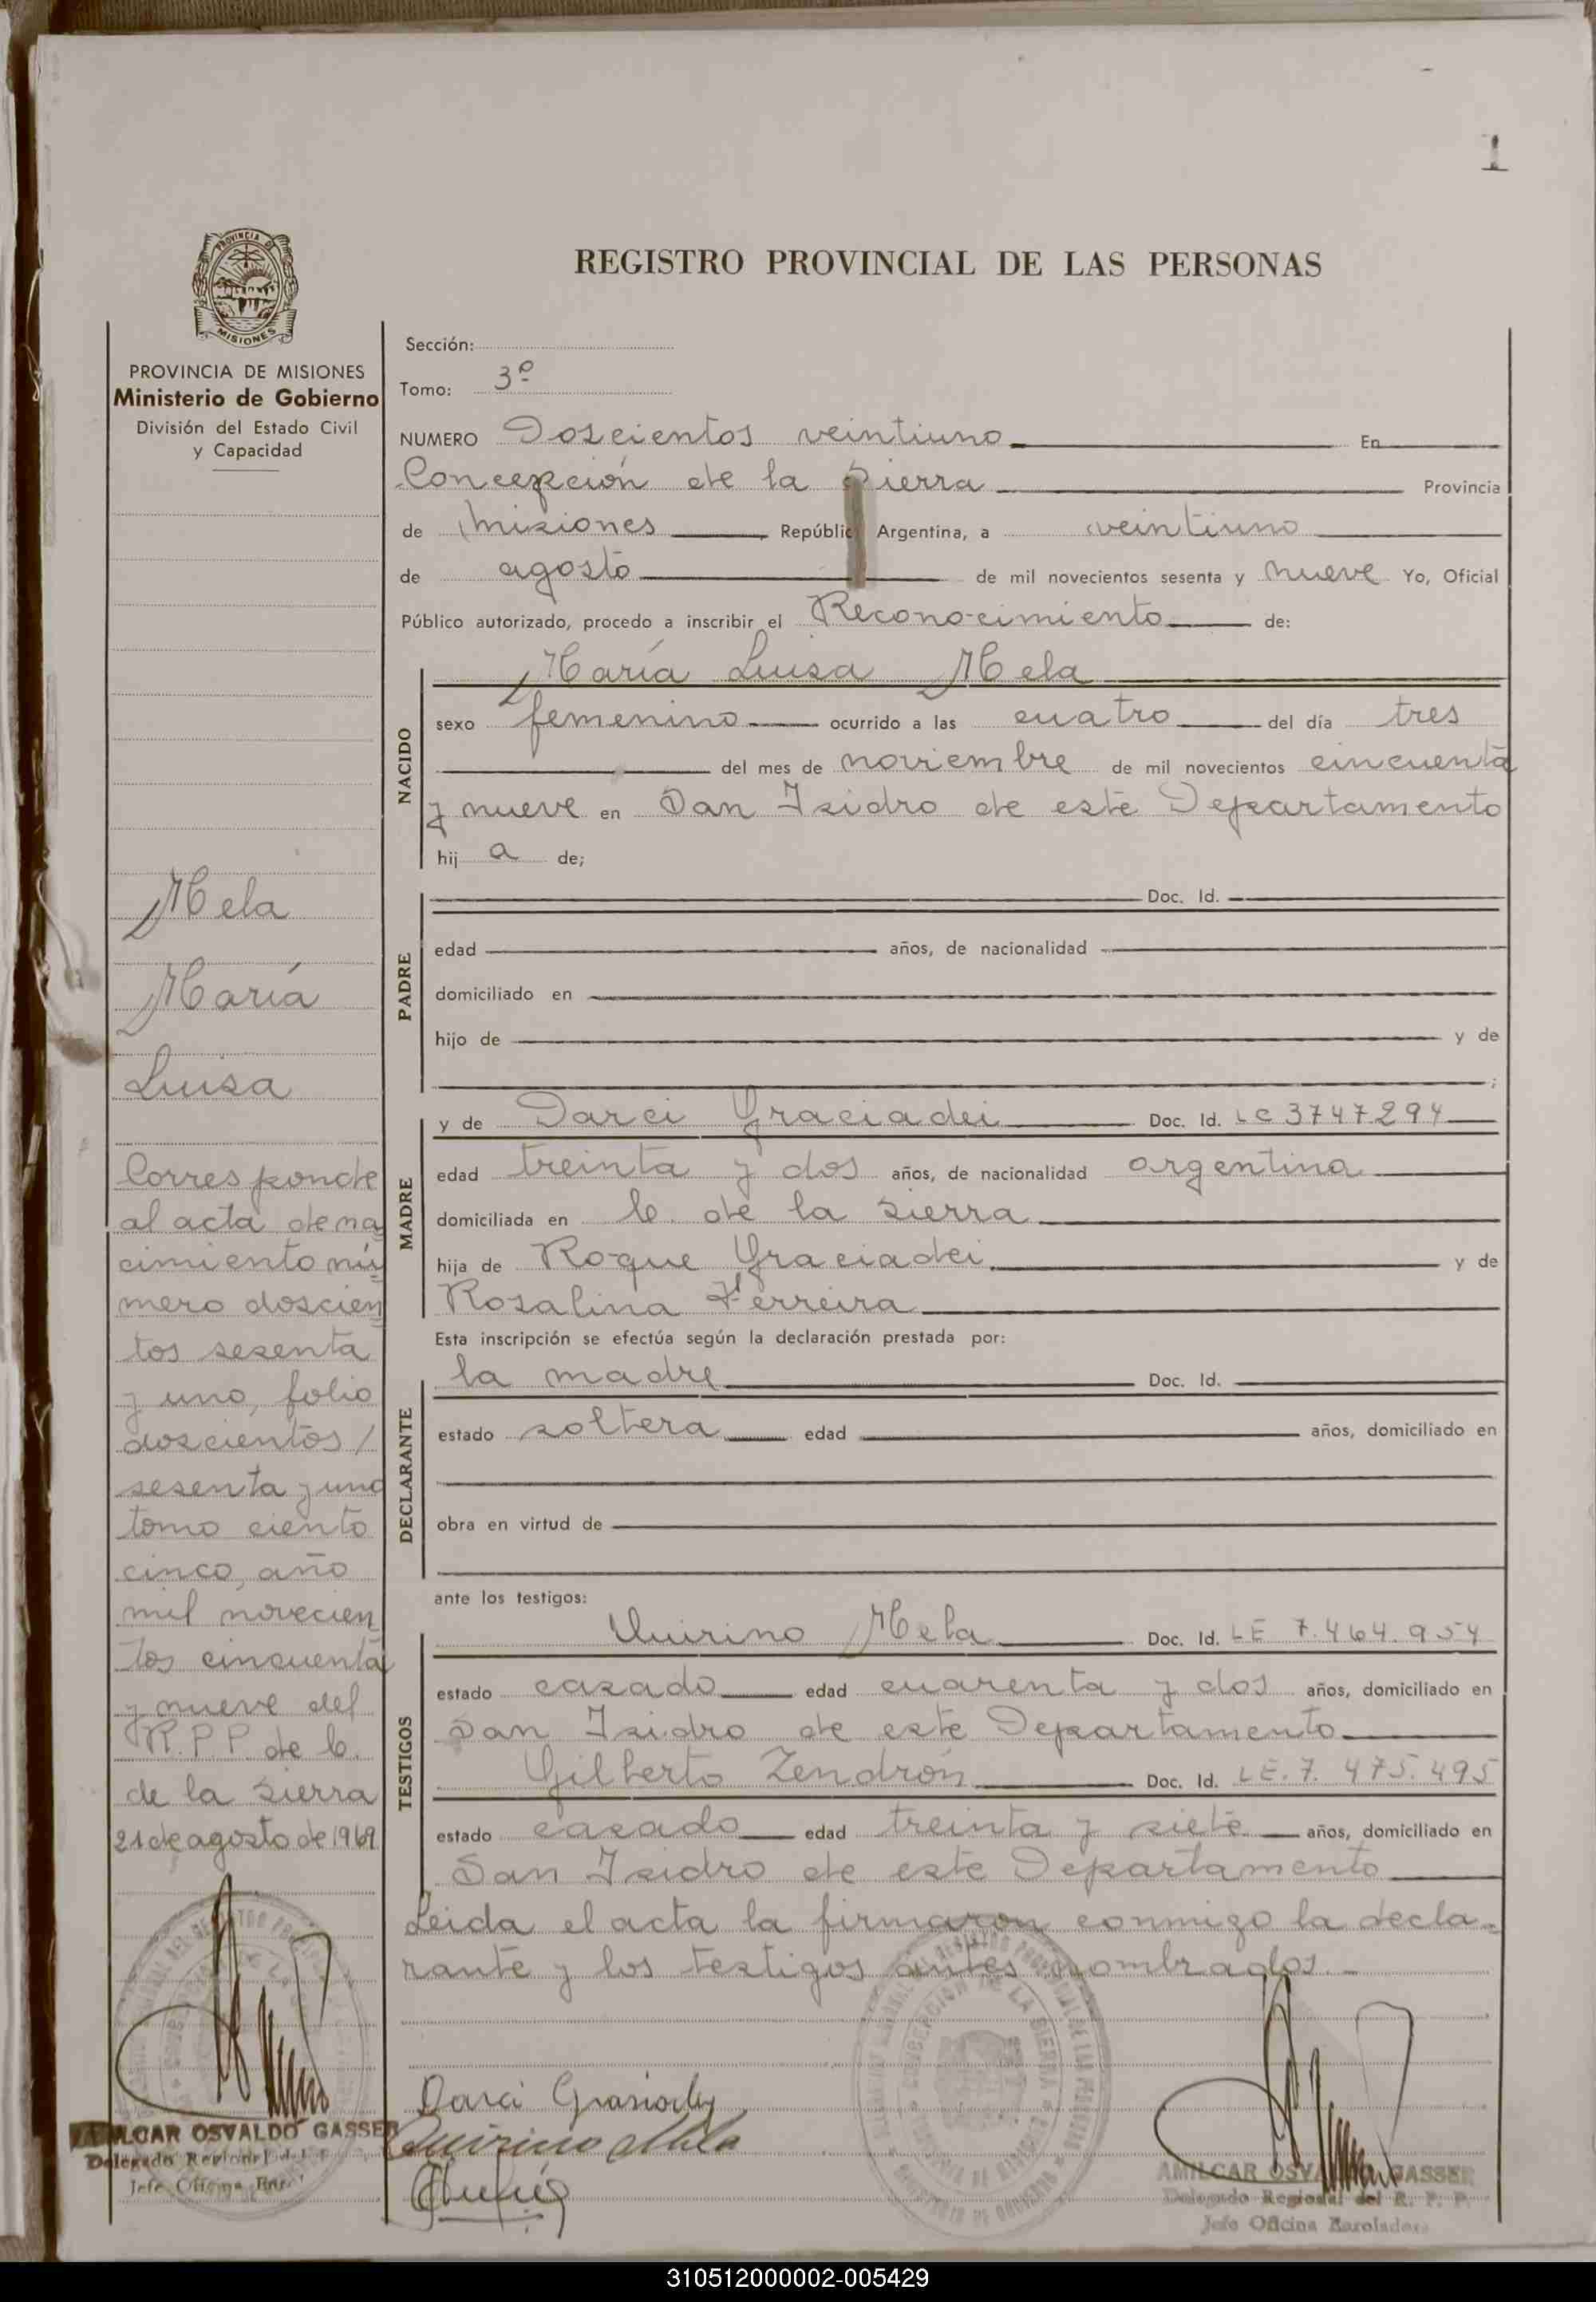 1
PROVINCIA DE
MISIONES
REGISTRO PROVINCIAL DE LAS PERSONAS
PROVINCIA DE MISIONES
Ministerio de Gobierno
División del Estado Civil
y Capacidad
Mela
María
Luisa
Corresponde
al acta de na
cimiento nú
mero doscien
tos sesenta
y uno, folio
doscientos /
sesenta y uno
tomo ciento
cinco, año
mil novecien
tos cincuenta
y nueve del
R.P.P. de C.
de la Sierra
21 de agosto de 1969
AMILCAR OSVALDO GASSER
Delegado Regional del
Jefe Oficina
Sección:
Tomo: 3º
NUMERO Doscientos veintiuno En
Concepción de la Sierra Provincia
de Misiones República Argentina, a veintiuno
de agosto de mil novecientos sesenta y nueve Yo, Oficial
Público autorizado, procedo a inscribir el Reconocimiento de:
María Luisa Mela
NACIDO
sexo femenino ocurrido a las cuatro del día tres
del mes de noviembre de mil novecientos cincuenta
y nueve en San Isidro de este Departamento
hij a de;
PADRE
Doc. Id.
edad años, de nacionalidad
domiciliado en
hijo de y de
;
MADRE
y de Darci Graciadei Doc. Id. LC 3747294
edad treinta y dos años, de nacionalidad argentina
domiciliada en C. de la Sierra
hija de Roque Graciadei y de
Rosalina Ferreira
Esta inscripción se efectúa según la declaración prestada por:
DECLARANTE
la madre Doc. Id.
estado soltera edad años, domiciliado en
obra en virtud de
ante los testigos:
TESTIGOS
Quirino Mela Doc. Id. LE 7.464.954
estado casado edad cuarenta y dos años, domiciliado en
San Isidro de este Departamento
Gilberto Zendrón Doc. Id. LE. 7. 475. 495
estado casado edad treinta y siete años, domiciliado en
San Isidro de este Departamento
Leida el acta la firmaron conmigo la decla-
rante y los testigos antes nombrados.-
Darci
Quirino Mela
AMILCAR OSVALDO GASSER
Delegado Regional del R. P. P.
Jefe Oficina Enroladora
310512000002-005429